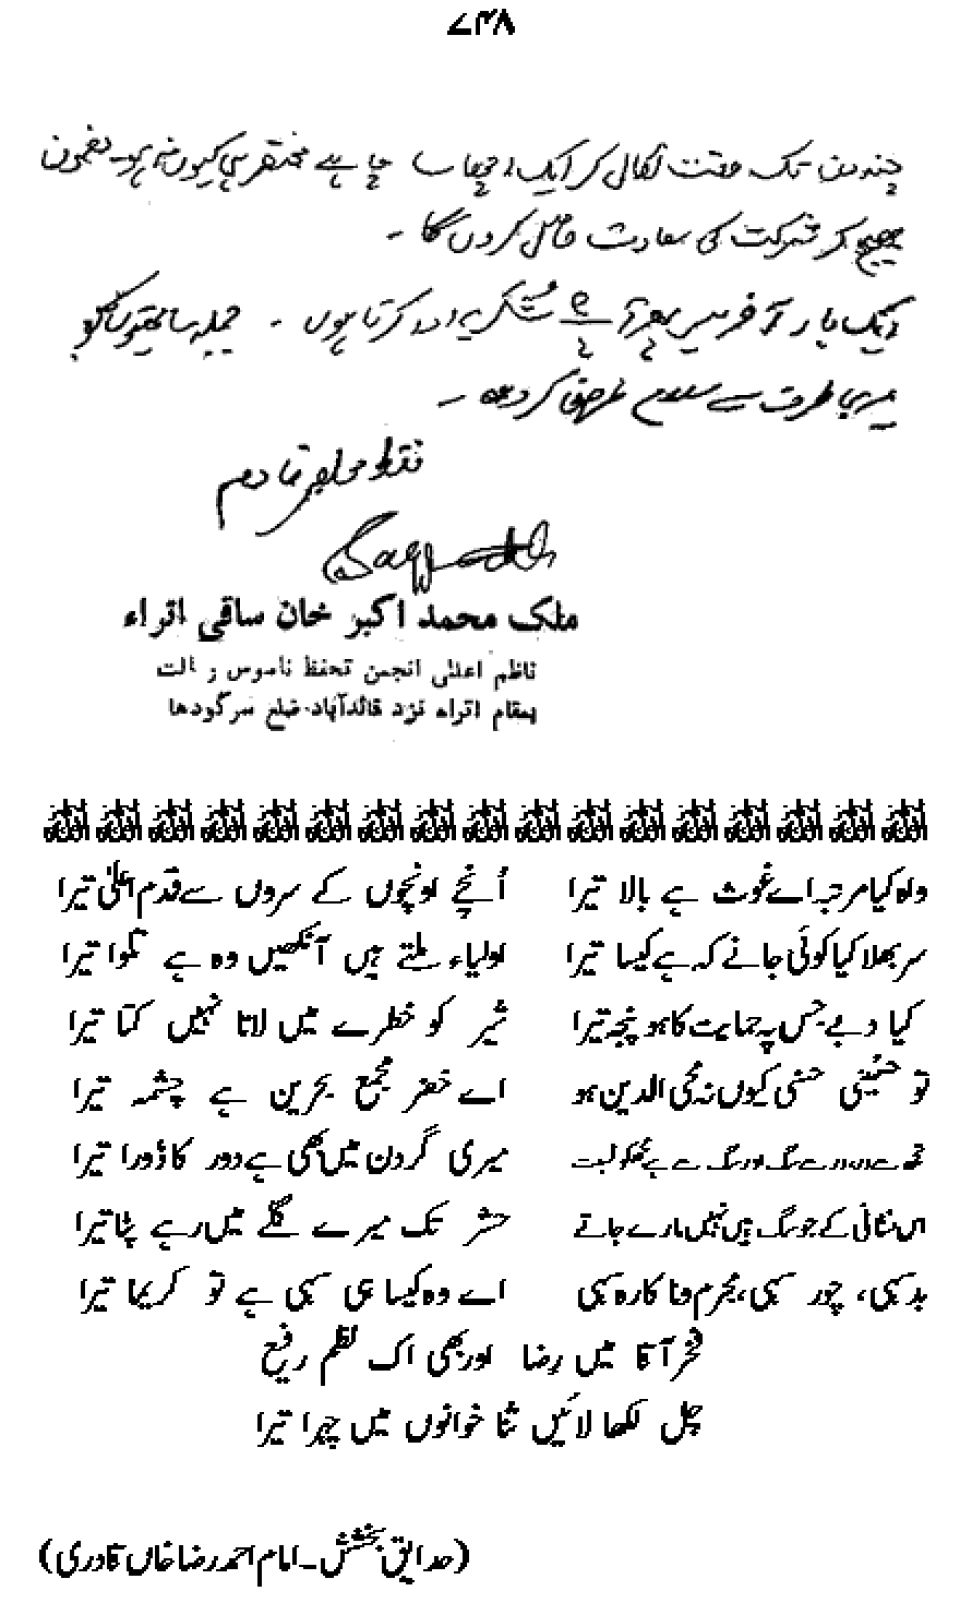 ۷۳۸
چند دن تک وقت نکال کر ایک اچھا سا چاہے مختصر ہی کیوں نہ ہو۔ مضمون
بھیج کر شرکت کی سعادت حاصل کروں گا ۔
ایک بار آخر میں پھر آپ کا شکریہ ادا کرتا ہوں ۔ جملہ ساتھیوں کو
میری طرف سے سلام عرض کر دیں ۔
فقط
ملک محمد اکبر خان ساقی اتراء
ناظم اعلیٰ انجمن تحفظ ناموس رسالت
بمقام اتراء نزد قائدآباد۔ ضلع سرگودھا
واہ کیا مرتبہ اے غوث ہے بالا تیرا اُنچے اونچوں کے سروں سے قدم اعلیٰ تیرا
سر بھلا کیا کوئی جانے کہ ہے کیسا تیرا اولیاء ملتے ہیں آنکھیں وہ ہے تلوا تیرا
کیا دبے جس پہ حمایت کا ہو پنجہ تیرا شیر کو خطرے میں لاتا نہیں کتا تیرا
تو حسینی حسنی کیوں نہ محی الدین ہو اے خضر مجمع بحرین ہے چشمہ تیرا
تجھ سے در در سے سگ اور سگ سے ہے مجھکو نسبت میری گردن میں بھی ہے دور کا ڈورا تیرا
اس نشانی کے جو سگ ہیں نہیں مارے جاتے حشر تک میرے گلے میں رہے پٹا تیرا
بد سہی، چور سہی، مجرم و ناکارہ سہی اے وہ کیسا ہی سہی ہے تو کریما تیرا
فخر آقا میں رضا اور بھی اک نظم رفیع
چل لکھا لائیں ثنا خوانوں میں چہرا تیرا
(حدایق بخشش۔ امام احمد رضا خاں قادری)